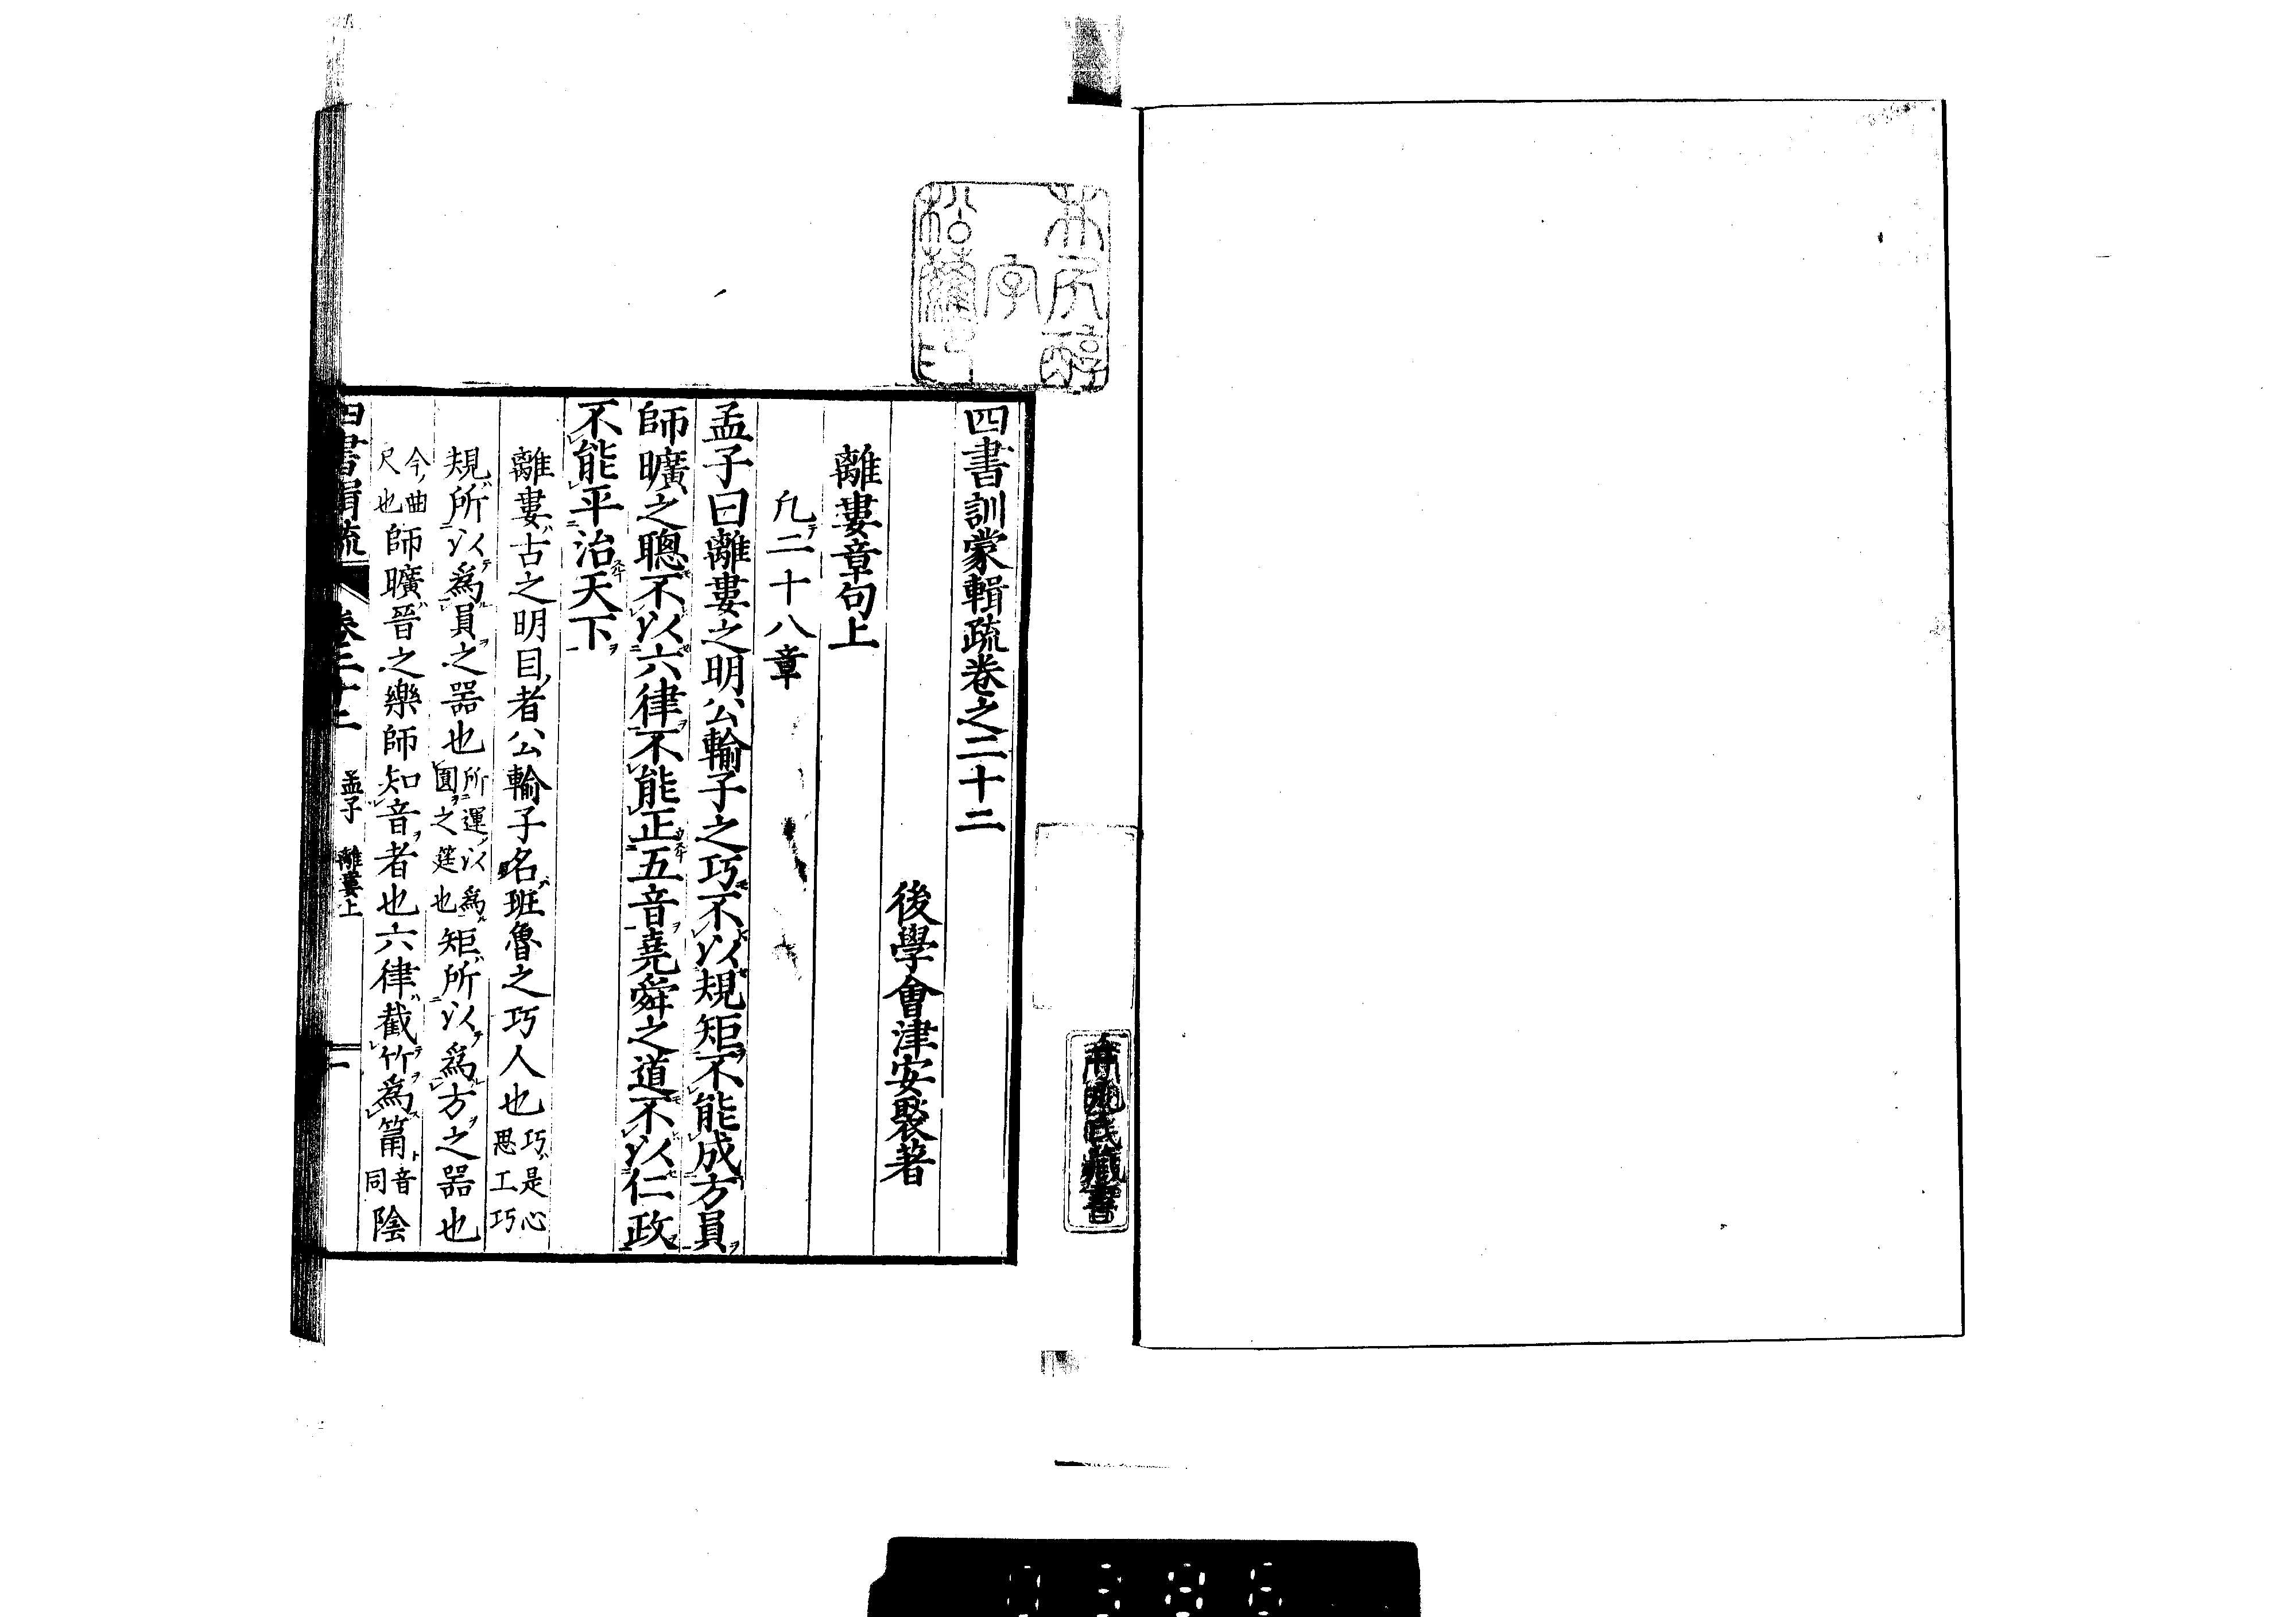 四書訓蒙輯疏卷之二十二
後學會津安褧著
離婁章句上
凡二十八章
孟子曰離婁之明公輸子之巧不以規矩不能成方員
師曠之聰不以六律不能正五音堯舜之道不以仁政
不能平治天下
離婁古之明目者公輸子名班魯之巧人也巧是心思工巧
規所以爲員之器也所運以爲圓之筳也矩所以爲方之器也
今曲尺也師曠晉之樂師知音者也六律截竹爲筩音同陰
四書輯疏 卷二十二 孟子 離婁上 一